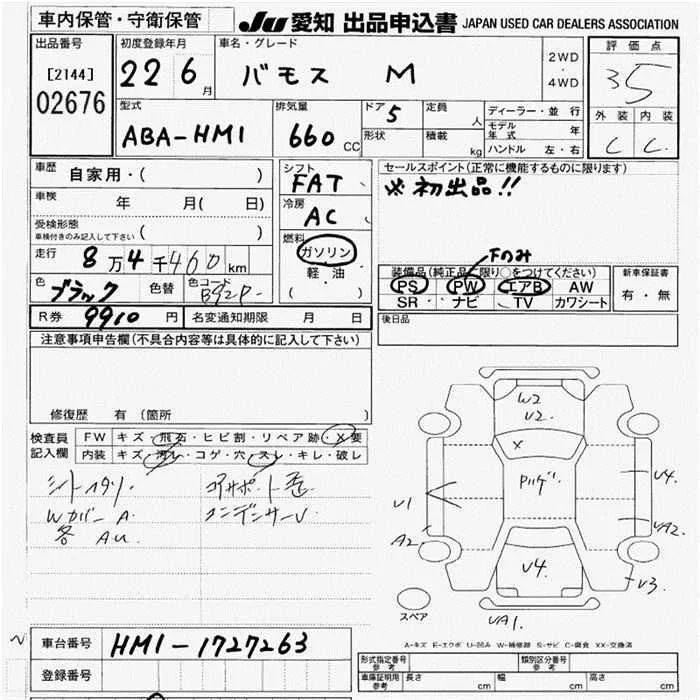 車内保管・守衛保管
JU 愛知 出品申込書 JAPAN USED CAR DEALERS ASSOCIATION
出品番号
[2144]
02676
初度登録年月
22 6 月
車名・グレード
バモス M
2WD
・
4WD
評価点
35
外装 内装
C C
型式
ABA-HM1
排気量
660 CC
ドア 5
形状
定員 人
積載 kg
ディーラー・並行
モデル年式 年
ハンドル 左・右
車歴 自家用・( )
車検 年 月( 日)
受検形態
車検付きのみ記入して下さい ( )
走行 8万4千460km
色 ブラック 色替 色コード B92P
シフト
FAT
冷房
AC
燃料
ガソリン
軽油
( )
セールスポイント(正常に機能するものに限ります)
※初出品!!
Fのみ
装備品(純正品に限り○をつけてください)
PS PW エアB AW
SR ナビ TV カワシート
新車保証書
有・無
R券 9910 円 名変通知期限 月 日
後日品
注意事項申告欄(不具合内容等は具体的に記入して下さい)
修復歴 有(箇所 )
検査員記入欄
FW キズ・飛石・ヒビ割・リペア跡・X要
内装 キズ・汚レ・コゲ・穴・スレ・キレ・破レ
シートヘタリ
Wカバー A
各 AU
コアサポート歪
コンデンサーU
W2
V2.
X
V1
A2
V4.
VA2.
V4.
V3
VA1.
スペア
A-キズ E-エクボ U-凹み W-補修跡 S-サビ C-腐食 XX-交換済
車台番号 HM1-1727263
登録番号
形式指定番号
参考
類別区分番号
参考
車庫証明用
参考
長さ cm 幅 cm 高さ cm